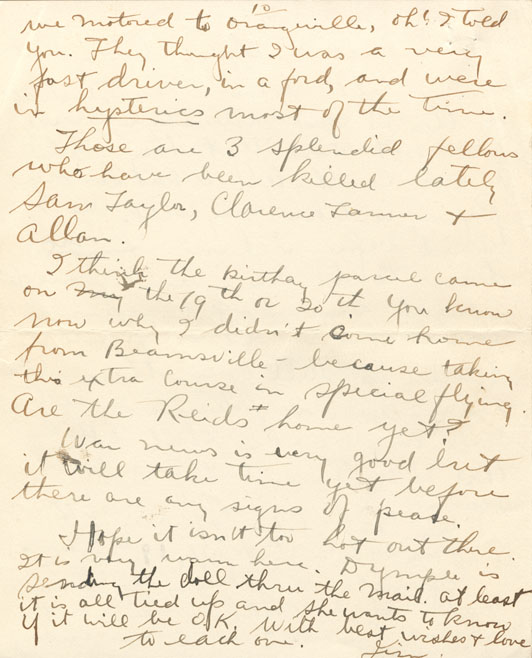 10
we motored to Orangeville, oh! I told
you. They thought I was a very
fast driver, in a ford, and were
in hysterics most of the time.
Those are 3 splendid fellows
who have been killed lately
Sam Taylor, Clarence Tanner +
Allan.
I think the birthay parcel came
on the 19th or 20th You know
now why I didn't come home
from Beamsville - because taking
this extra course in special flying
Are the Reids home yet?
War news is very good but
it will take time yet before
there are any signs of peace.
Hope it isn't too hot out there.
It is very warm here. Dymple is
sending the doll thru the mail. at least
it is all tied up and she wants to know
if it will be O.K. With best wishes + love
to each one. Jim.